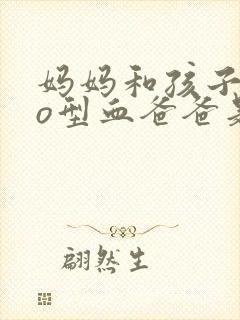 妈妈和孩子
o型血爸爸
翩然生